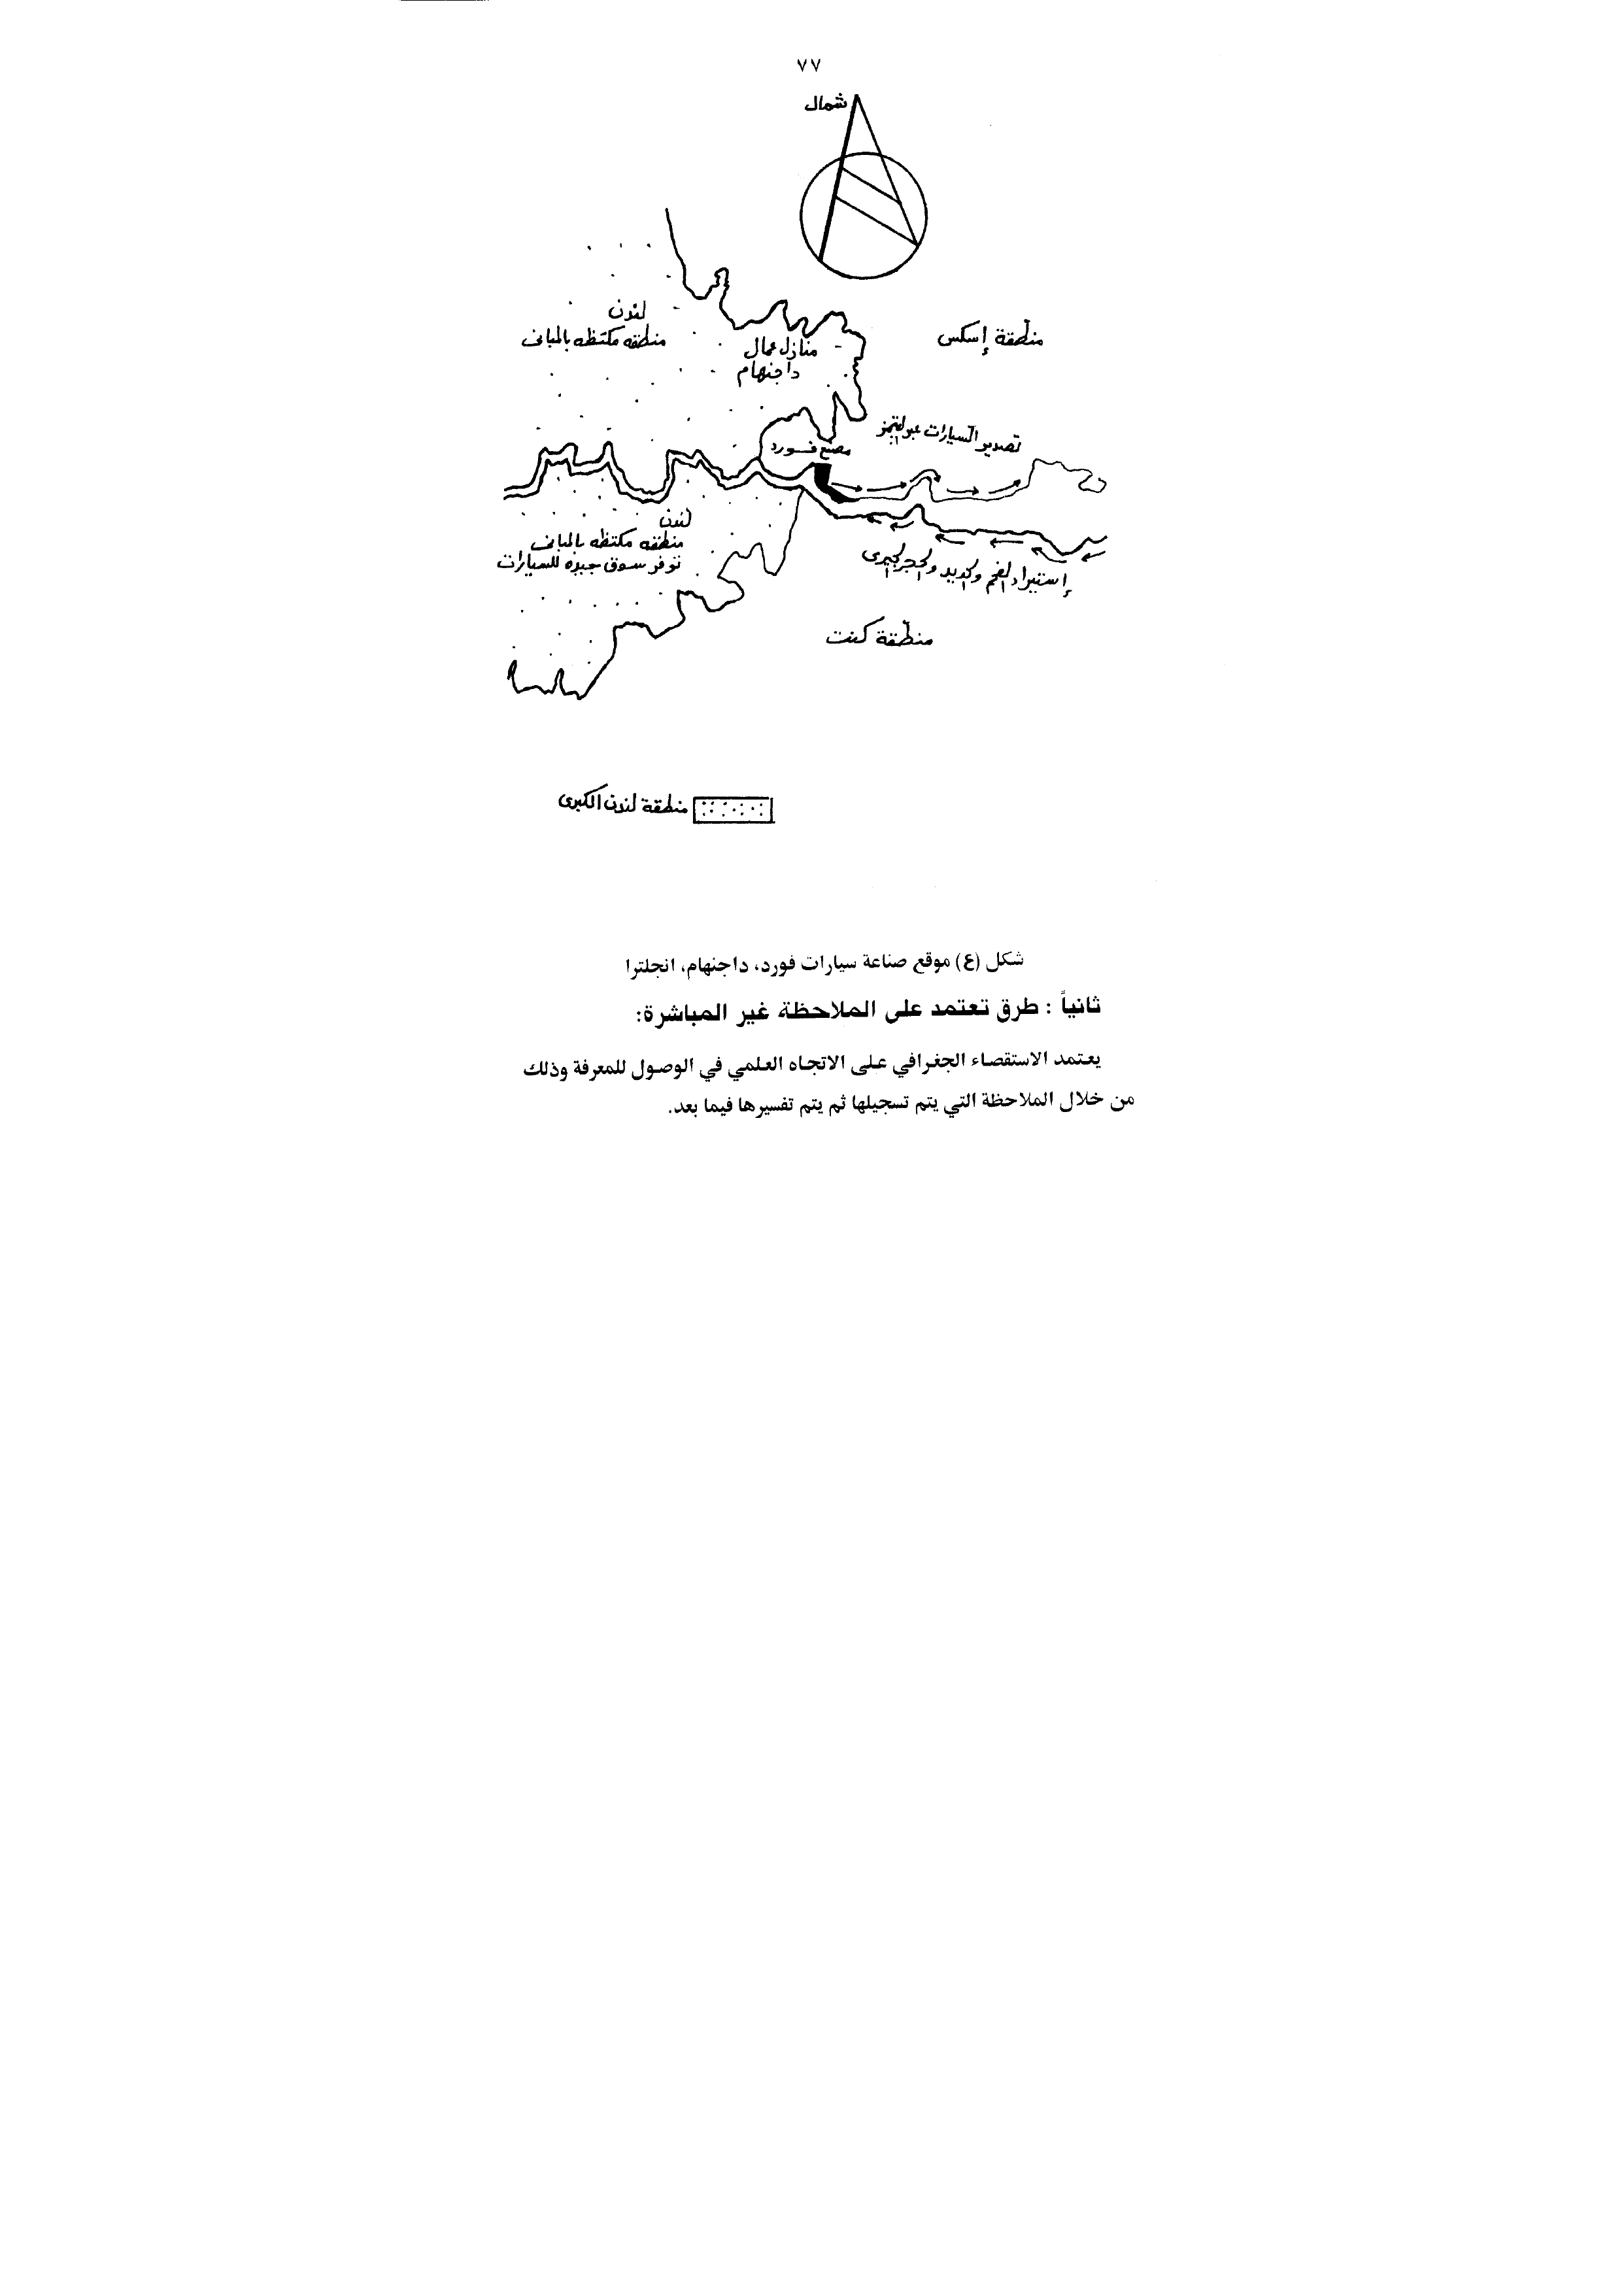 ٧٧
شمال
لندن
منطقه مكتظه بالمبانى
منازل عمال
داجنهام
منطقة إسكس
تصدير السيارات عبر التيمز
مصنع فورد
لندن
منطقه مكتظه بالمبانى
توفر سوق جيده للسيارات
إستيراد الفحم والحديد والحجر الجيرى
منطقة كنت
منطقة لندن الكبرى
شكل (٤) موقع صناعة سيارات فورد، داجنهام، انجلترا
ثانياً : طرق تعتمد على الملاحظة غير المباشرة:
يعتمد الاستقصاء الجغرافي على الاتجاه العلمي في الوصول للمعرفة وذلك
من خلال الملاحظة التي يتم تسجيلها ثم يتم تفسيرها فيما بعد.